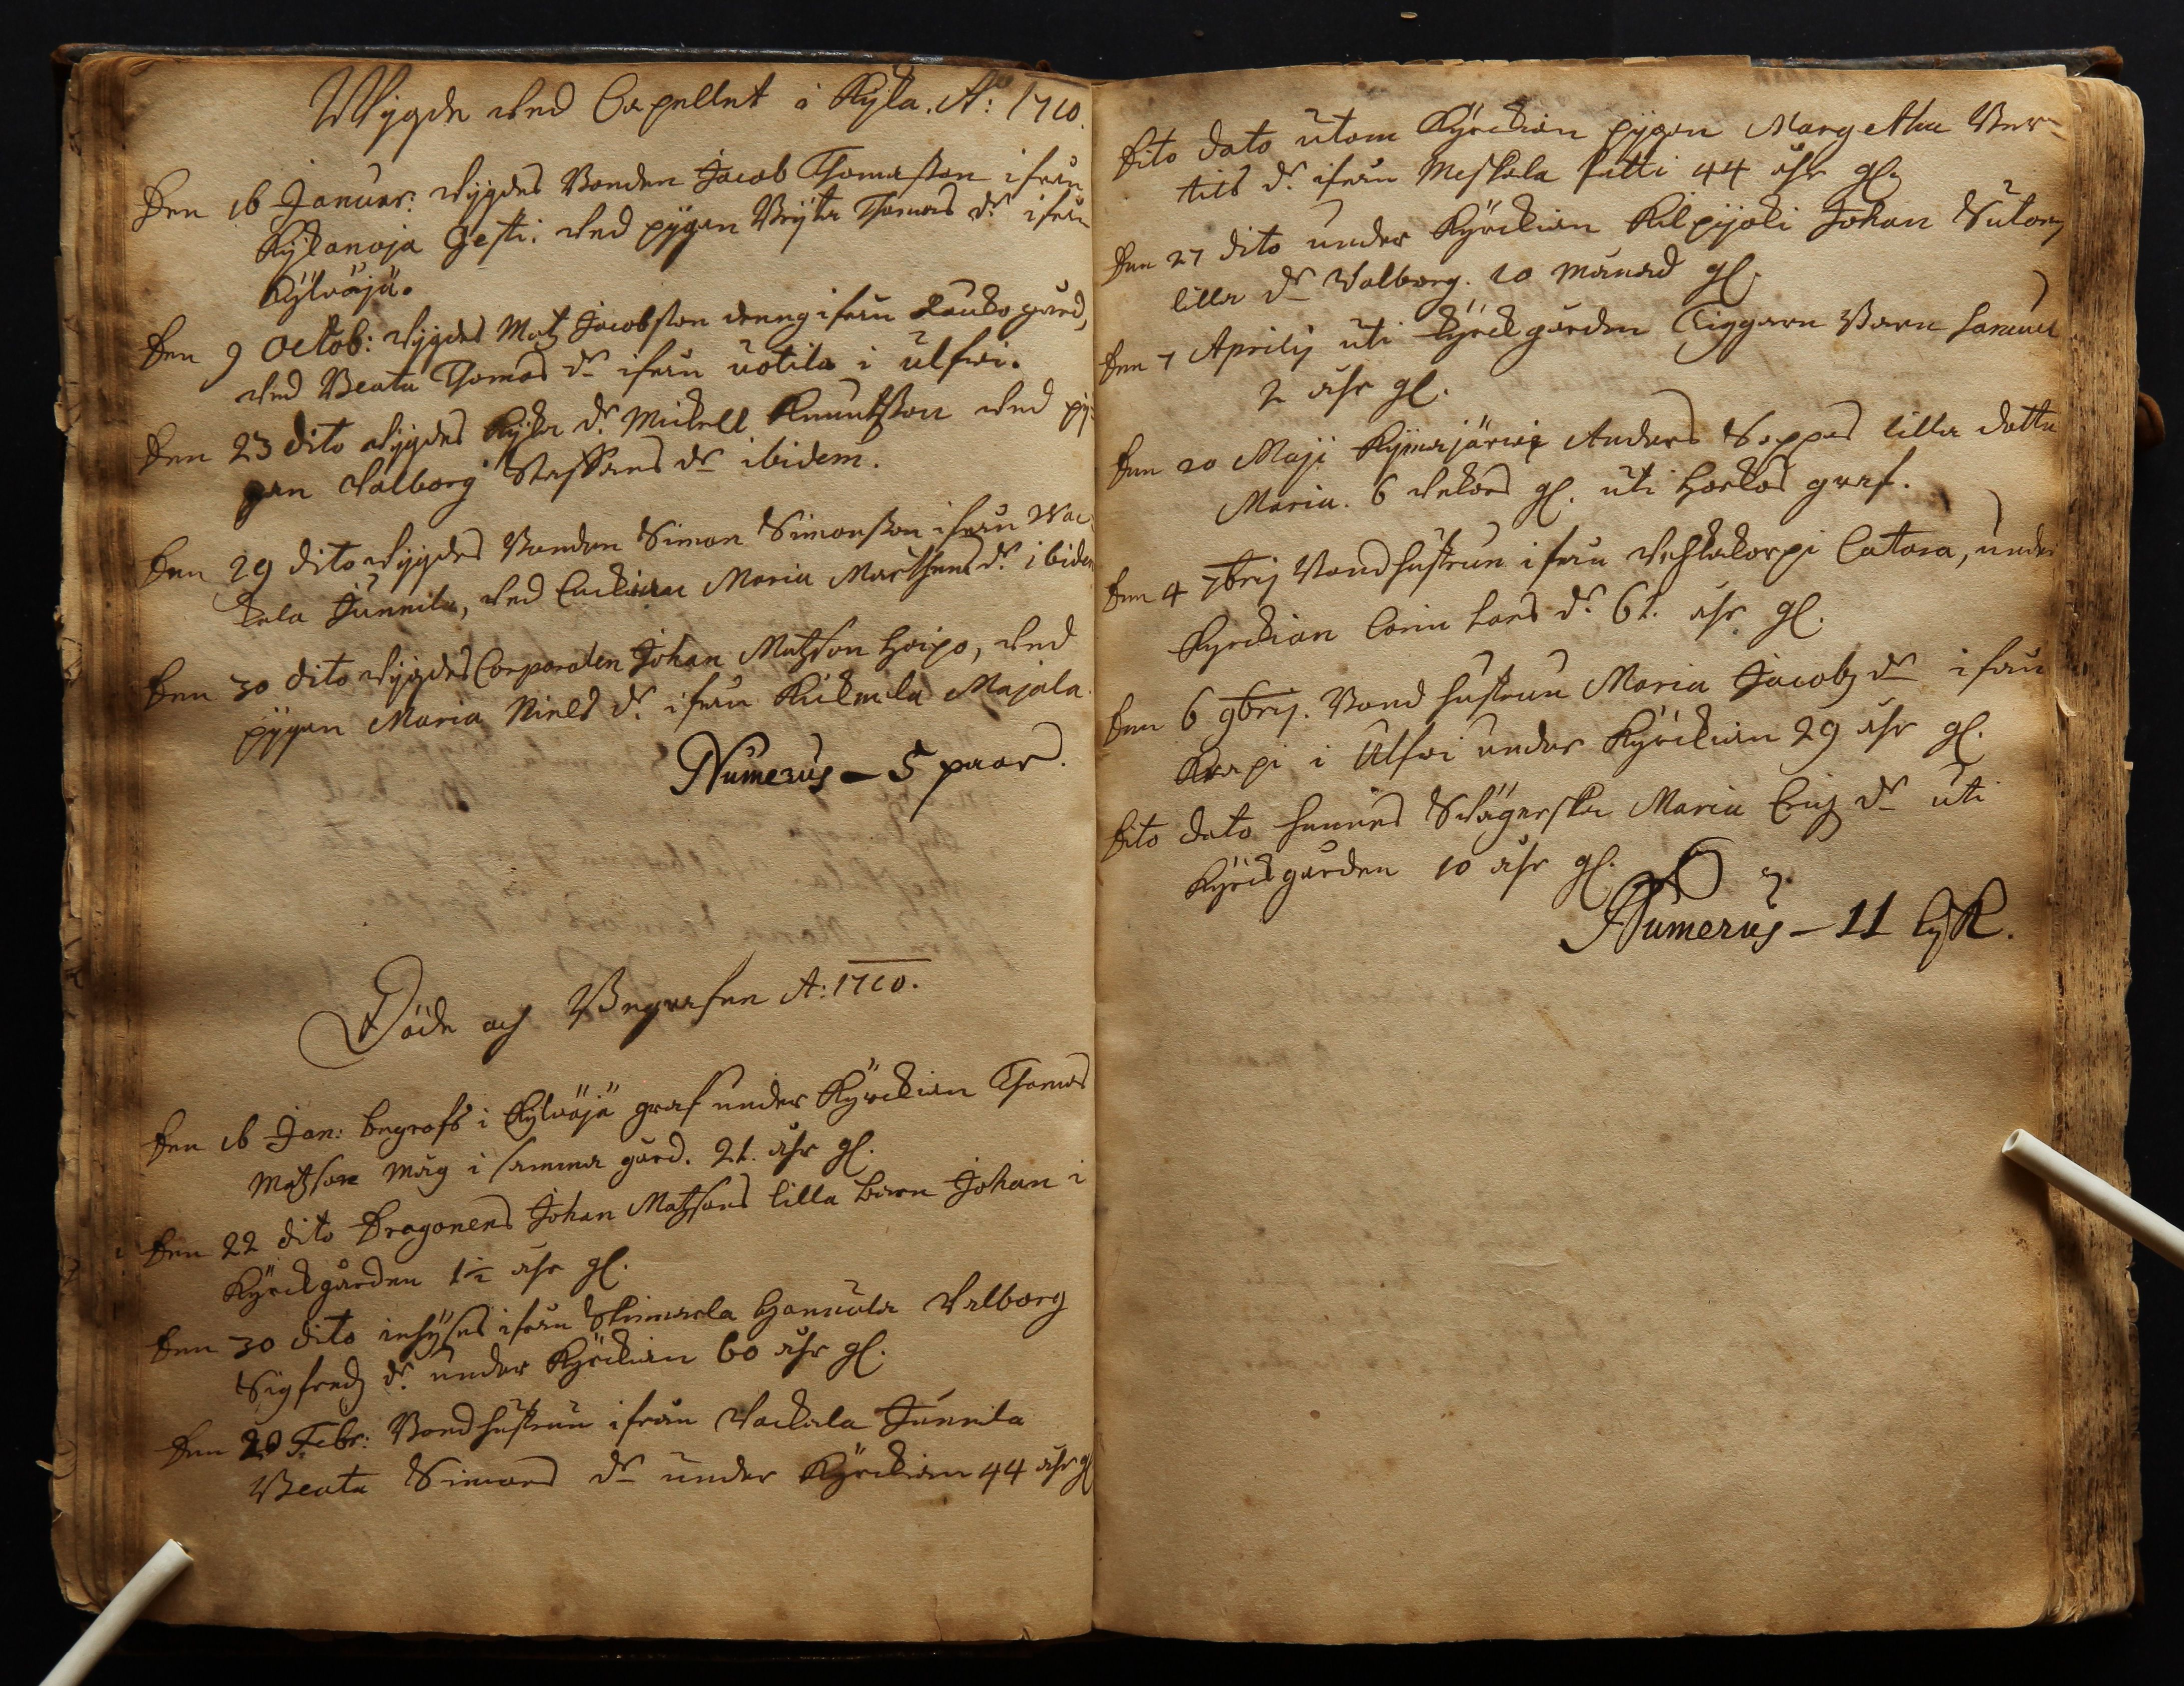 Wijgde wed Capellet i Kijla. A: 1710.
Den 16 Januar: wijgdes Bonden Jacob Thomasson ifrån
Kijlanoja Gesti. wed pijgan Brijta Thomas dr ifrån
Kijlwäjä.
Den 9 Octob: wijgdes Matz Jacobsson dreng ifrån Laukogård,
wed Beata Thomas dr ifrån Uotila i Ulfwi.
Den 23 dito wijgdes Kijla dr. Mickell Knuutsson wed pij-
gan Walborg Staffans dr ibidem.
Den 29 dito wijgdes Bonden Simon Simonsson ifrån Wac-
kela Junnila, wed Enckian Maria Marthens dr. ibidem
Den 30 dito wijgdes Corporalen Johan Matzson Hoipo, wed
pijgan Maria Niels dr. ifrån Kukemela Majala.
Numerus – 5 paar.
Döde och Begrafne A: 1710.
Den 16 Jan: begrofs i Kijlwäjä graf under Kÿrckian Thomas
Matzson mäg i samma gård. 21. åhr gl.
Den 22 dito Dragonens Johan Matzsons lilla barn Johan i
Kÿrckgården 1½ åhr gl.
Den 30 dito inhÿses ifrån Skinnarla Hannula Walborg
Sigfredz dr. under Kÿrckian 60 åhr gl.
Den 20 Febr: Bondhustrun ifrån Wackela Junnila
Beata Simons dr under Kÿrckian 44 åhr gl
Dito dato utom Kÿrckian pijgan Margetha Ber-
tils dr. ifrån Meskala 44 åhr gl.
Den 27 dito under Kÿrckian Kilpijoki Johan Sutors
lilla dr Walborg. 10 månad gl.
Den 7 Aprilij uti Kÿrckgården Tiggare Barn Samuel
2 åhr gl.
Den 20 Maji Kijmajärwi Anders Seppas lilla dotter
Maria. 6 wekors gl. uti Horkas graf.
Den 4 7brij Bondhustrun ifrån Wehkakorpi Catara, under
Kyrckian Lars dr. 61. åhr gl.
Den 6 9brij. Bondhustrun Maria Jacobz dr ifrån
Krapi i Ulfwi under Kÿrckian 29 åhr gl.
Dito dato hennes Swägerska Maria Erichz dr uti
Kÿrckgården 10 åhr gl.
Numerus – 11 lijk.